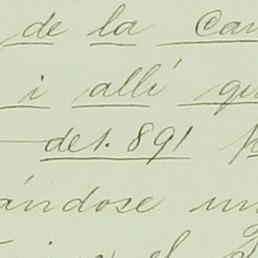 de la Can
i allí qu
de 1.891
ándose un